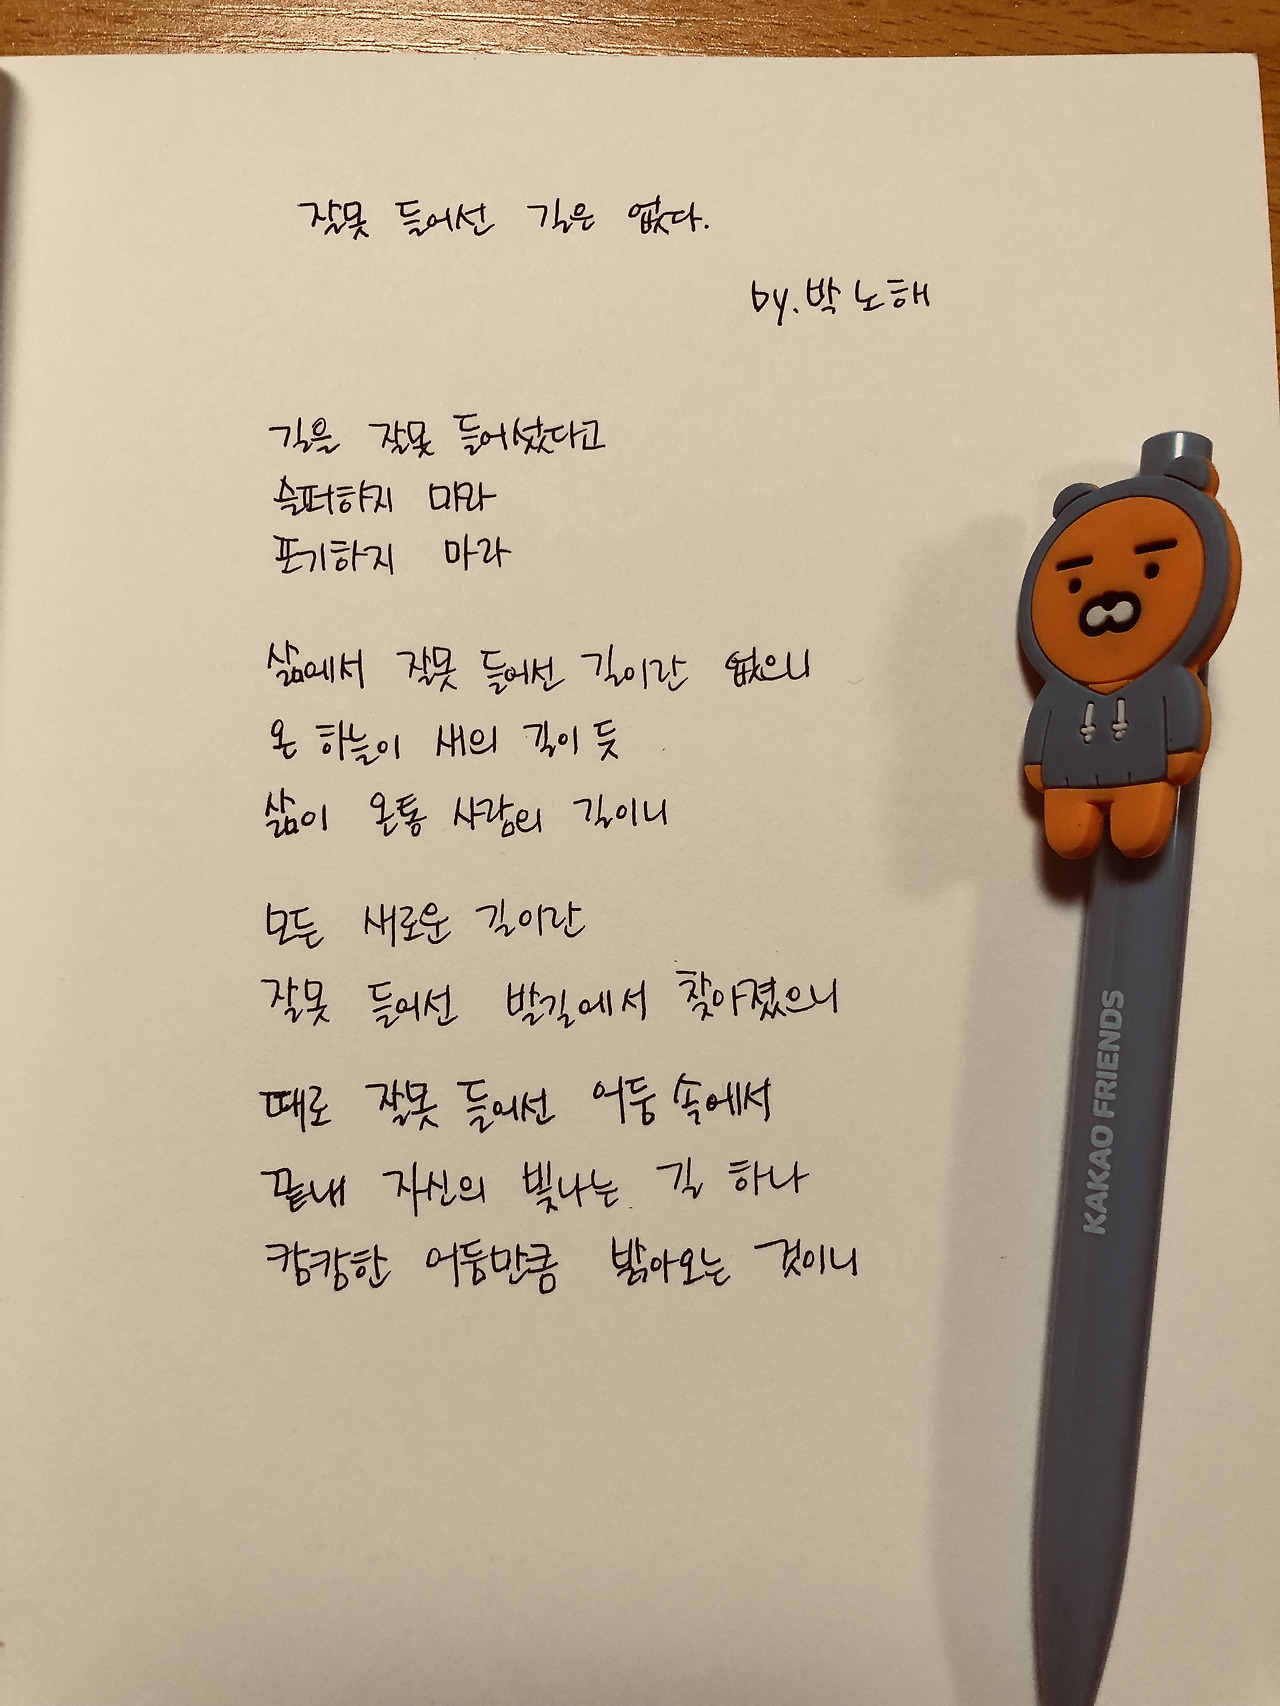 잘못 들어선 길은 없다.
by. 박노해
길을 잘못 들어섰다고
슬퍼하지 마라
포기하지 마라
삶에서 잘못 들어선 길이란 없으니
온 하늘이 새의 길이듯
삶이 온통 사람의 길이니
모든 새로운 길이란
잘못 들어선 발길에서 찾아졌으니
때로 잘못 들어선 어둠 속에서
끝내 자신의 빛나는 길 하나
캄캄한 어둠만큼 밝아오는 것이니
KAKAO FRIENDS